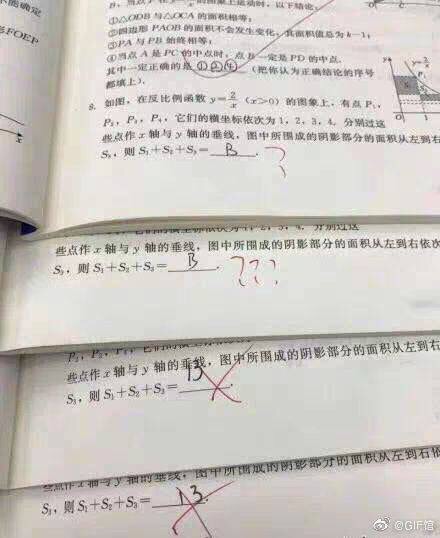 B，当点P在y=
的图象上运动时，以下结论：
①△ODB与△OCA的面积相等；
②四边形PAOB的面积不会发生变化，其面积值总为k-1；
③PA与PB始终相等；
④当点A是PC的中点时，点B一定是PD的中点.
其中一定正确的是 ①②④ （把你认为正确结论的序号
都填上）.
不能确定
形FOEP
8. 如图，在反比例函数y=2/x（x>0）的图象上，有点P₁，
P₂，P₃，P₄，它们的横坐标依次为1，2，3，4. 分别过这
些点作x轴与y轴的垂线，图中所围成的阴影部分的面积从左到右依次
S₃，则S₁+S₂+S₃= B . ?
y
y=2/x
O 1
些点作x轴与y轴的垂线，图中所围成的阴影部分的面积从左到右依次
S₃，则S₁+S₂+S₃= B . ???
些点作x轴与y轴的垂线，图中所围成的阴影部分的面积从左到右
S₃，则S₁+S₂+S₃= 13 .
些点作x轴与y轴的垂线，图中所围成的阴影部分的面积从左到右依
S₃，则S₁+S₂+S₃= 13 .
@GIF馆